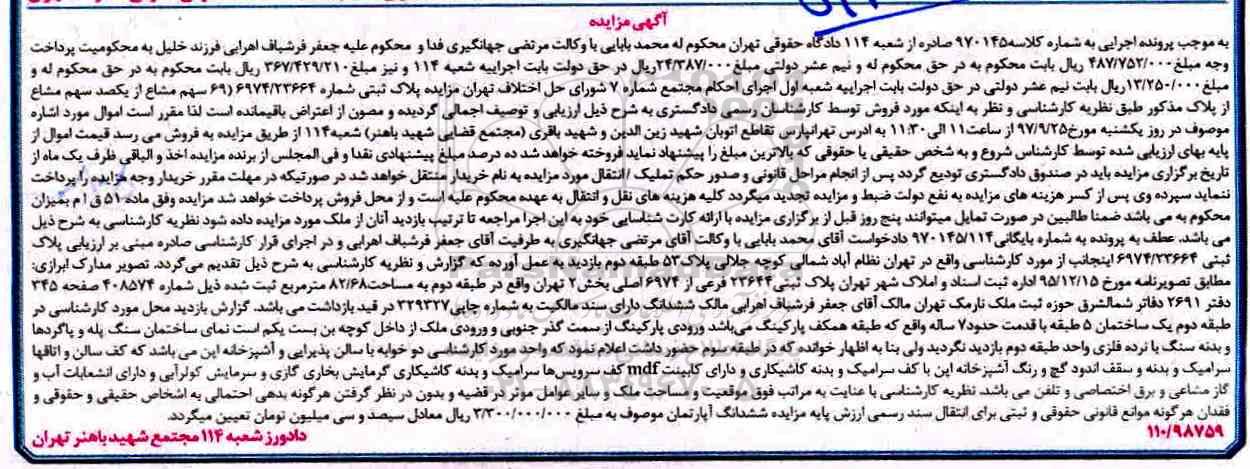 آگهی مزایده
به موجب پرونده اجرایی به شماره کلاسه۹۷۰۱۴۵ صادره از شعبه ۱۱۴ دادگاه حقوقی تهران محکوم له محمد بابایی با وکالت مرتضی جهانگیری فدا و محکوم علیه جعفر فرشباف اهرابی فرزند خلیل به محکومیت پرداخت
وجه مبلغ۴۸۷/۷۵۲/۰۰۰ ریال بابت محکوم به در حق محکوم له و نیم عشر دولتی مبلغ۲۴/۳۸۷/۰۰۰ریال در حق دولت بابت اجراییه شعبه ۱۱۴ و نیز مبلغ۳۶۷/۴۲۹/۲۱۰ ریال بابت محکوم به در حق محکوم له و
مبلغ۱۳/۲۵۰/۰۰۰ریال بابت نیم عشر دولتی در حق دولت بابت اجراییه شعبه اول اجرای احکام مجتمع شماره ۷ شورای حل اختلاف تهران مزایده پلاک ثبتی شماره ۶۹۷۴/۲۳۶۶۴ (۶۹ سهم مشاع از یکصد سهم مشاع
از پلاک مذکور طبق نظریه کارشناسی و نظر به اینکه مورد فروش توسط کارشناسان رسمی دادگستری به شرح ذیل ارزیابی و توصیف اجمالی گردیده و مصون از اعتراض باقیمانده است لذا مقرر است اموال مورد اشاره
موصوف در روز یکشنبه مورخ۹۷/۹/۲۵ از ساعت۱۱ الی۱۱:۳۰ به ادرس تهرانپارس تقاطع اتوبان شهید زین الدین و شهید باقری (مجتمع قضایی شهید باهنر) شعبه۱۱۴ از طریق مزایده به فروش می رسد قیمت اموال از
پایه بهای ارزیابی شده توسط کارشناس شروع و به شخص حقیقی یا حقوقی که بالاترین مبلغ را پیشنهاد نماید فروخته خواهد شد ده درصد مبلغ پیشنهادی نقدا و فی المجلس از برنده مزایده اخذ و الباقی ظرف یک ماه از
تاریخ برگزاری مزایده باید در صندوق دادگستری تودیع گردد پس از انجام مراحل قانونی و صدور حکم تملیک /انتقال مورد مزایده به نام خریدار منتقل خواهد شد در صورتیکه در مهلت مقرر خریدار وجه مزایده را پرداخت
ننماید سپرده وی پس از کسر هزینه های مزایده به نفع دولت ضبط و مزایده تجدید میگردد کلیه هزینه های نقل و انتقال به عهده محکوم علیه است و از محل فروش پرداخت خواهد شد مزایده وفق ماده ۵۱ ق ا م بمیزان
محکوم به می باشد ضمنا طالبین در صورت تمایل میتوانند پنج روز قبل از برگزاری مزایده با ارائه کارت شناسایی خود به این اجرا مراجعه تا ترتیب بازدید آنان از ملک مورد مزایده داده شود نظریه کارشناسی به شرح ذیل
می باشد. عطف به پرونده به شماره بایگانی۹۷۰۱۴۵/۱۱۴ دادخواست آقای محمد بابایی با وکالت آقای مرتضی جهانگیری به طرفیت آقای جعفر فرشباف اهرابی و در اجرای قرار کارشناسی صادره مبنی بر ارزیابی پلاک
ثبتی ۶۹۷۴/۲۳۶۶۴ اینجانب از مورد کارشناسی واقع در تهران نظام آباد شمالی کوچه جلالی پلاک۵۳ طبقه دوم بازدید به عمل آورده که گزارش و نظریه کارشناسی به شرح ذیل تقدیم می‌گردد. تصویر مدارک ابرازی:
مطابق تصویرنامه مورخ ۹۵/۱۲/۱۵ اداره ثبت اسناد و املاک شهر تهران پلاک ثبتی۲۳۶۴۴ فرعی از ۶۹۷۴ اصلی بخش۲ تهران واقع در طبقه دوم به مساحت۸۲/۶۸ مترمربع ثبت شده ذیل شماره ۴۰۸۵۷۴ صفحه ۳۴۵
دفتر ۲۶۹۱ دفاتر شمالشرق حوزه ثبت ملک نارمک تهران مالک آقای جعفر فرشباف اهرابی مالک ششدانگ دارای سند مالکیت به شماره چاپی۳۲۹۳۲۷ در قید بازداشت می باشد. گزارش بازدید محل مورد کارشناسی در
طبقه دوم یک ساختمان ۵ طبقه با قدمت حدود۷ ساله واقع که طبقه همکف پارکینگ می‌باشد ورودی پارکینگ از سمت گذر جنوبی و ورودی ملک از داخل کوچه بن بست یکم است نمای ساختمان سنگ پله و پاگردها
و بدنه سنگ با نرده فلزی واحد طبقه دوم بازدید نگردید ولی بنا به اظهار خوانده که در طبقه سوم حضور داشت اعلام نمود که واحد مورد کارشناسی دو خوابه با سالن پذیرایی و آشپزخانه اپن می باشد که کف سالن و اتاقها
سرامیک و بدنه و سقف اندود گچ و رنگ آشپزخانه اپن با کف سرامیک و بدنه کاشیکاری و دارای کابینت mdf کف سرویس‌ها سرامیک و بدنه کاشیکاری گرمایش بخاری گازی و سرمایش کولرآبی و دارای انشعابات آب و
گاز مشاعی و برق اختصاصی و تلفن می باشد. نظریه کارشناسی با عنایت به مراتب فوق موقعیت و مساحت ملک و سایر عوامل موثر در قضیه و بدون در نظر گرفتن هرگونه بدهی احتمالی به اشخاص حقیقی و حقوقی و
فقدان هرگونه موانع قانونی حقوقی و ثبتی برای انتقال سند رسمی ارزش پایه مزایده ششدانگ آپارتمان موصوف به مبلغ ۳/۳۰۰/۰۰۰/۰۰۰ ریال معادل سیصد و سی میلیون تومان تعیین میگردد.
۱۱۰/۹۸۷۵۹
دادورز شعبه ۱۱۴ مجتمع شهید باهنر تهران